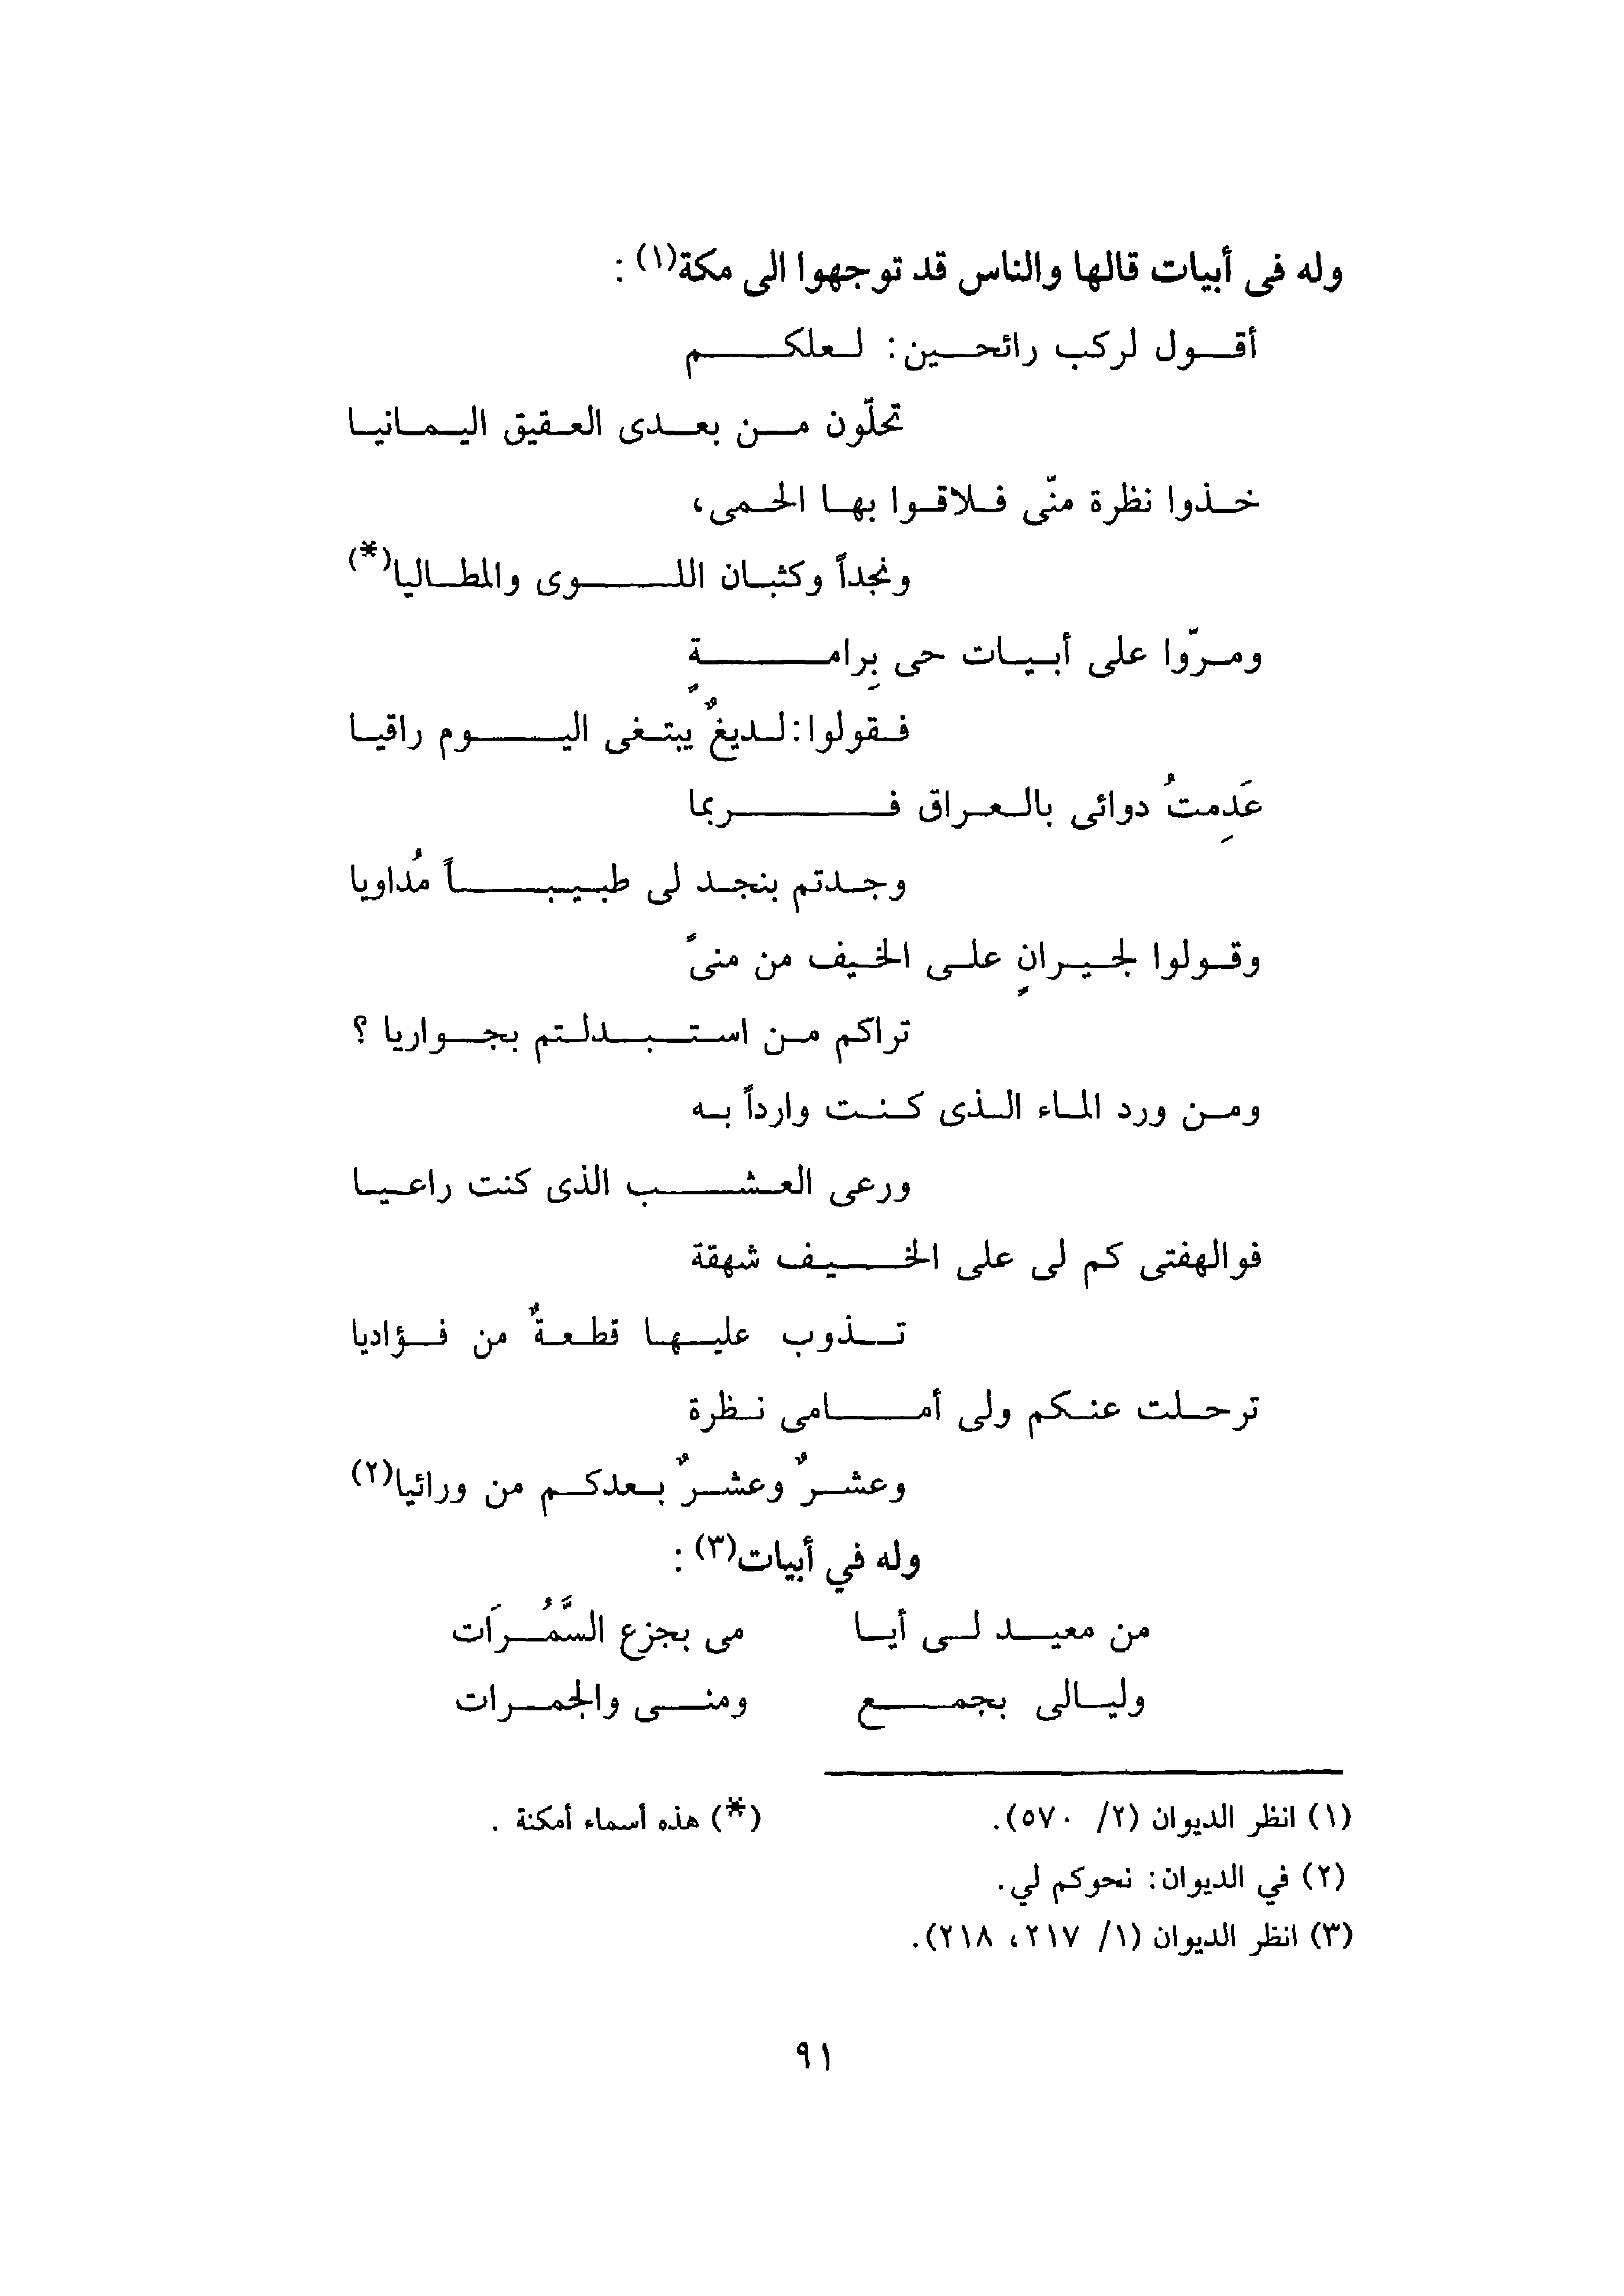 وله فى أبيات قالها والناس قد توجهوا الى مكة(١) :
أقول لركب رائحين: لعلكم
تحلّون من بعدى العقيق اليمانيا
خذوا نظرة منّى فلاقوا بها الحمى،
ونجداً وكثبان اللوى والمطاليا(*)
ومرّوا على أبيات حى بِرامةٍ
فقولوا: لديغٌ يبتغى اليوم راقيا
عَدِمتُ دوائى بالعراق فربما
وجدتم بنجد لى طبيباً مُداويا
وقولوا لجيرانٍ على الخيف من منىً
تراكم من استبدلتم بجواريا ؟
ومن ورد الماء الذى كنت وارداً به
ورعى العشب الذى كنت راعيا
فوالهفتى كم لى على الخيف شهقة
تذوب عليها قطعةٌ من فؤاديا
ترحلت عنكم ولى أمامى نظرة
وعشرٌ وعشرٌ بعدكم من ورائيا(٢)
وله في أبيات(٣) :
من معيد لى أيا مى بجزع السَّمُرَات
وليالى بجمع ومنى والجمرات
(١) انظر الديوان (٢/ ٥٧٠). (*) هذه أسماء أمكنة .
(٢) في الديوان: نحوكم لي.
(٣) انظر الديوان (١/ ٢١٧، ٢١٨).
٩١